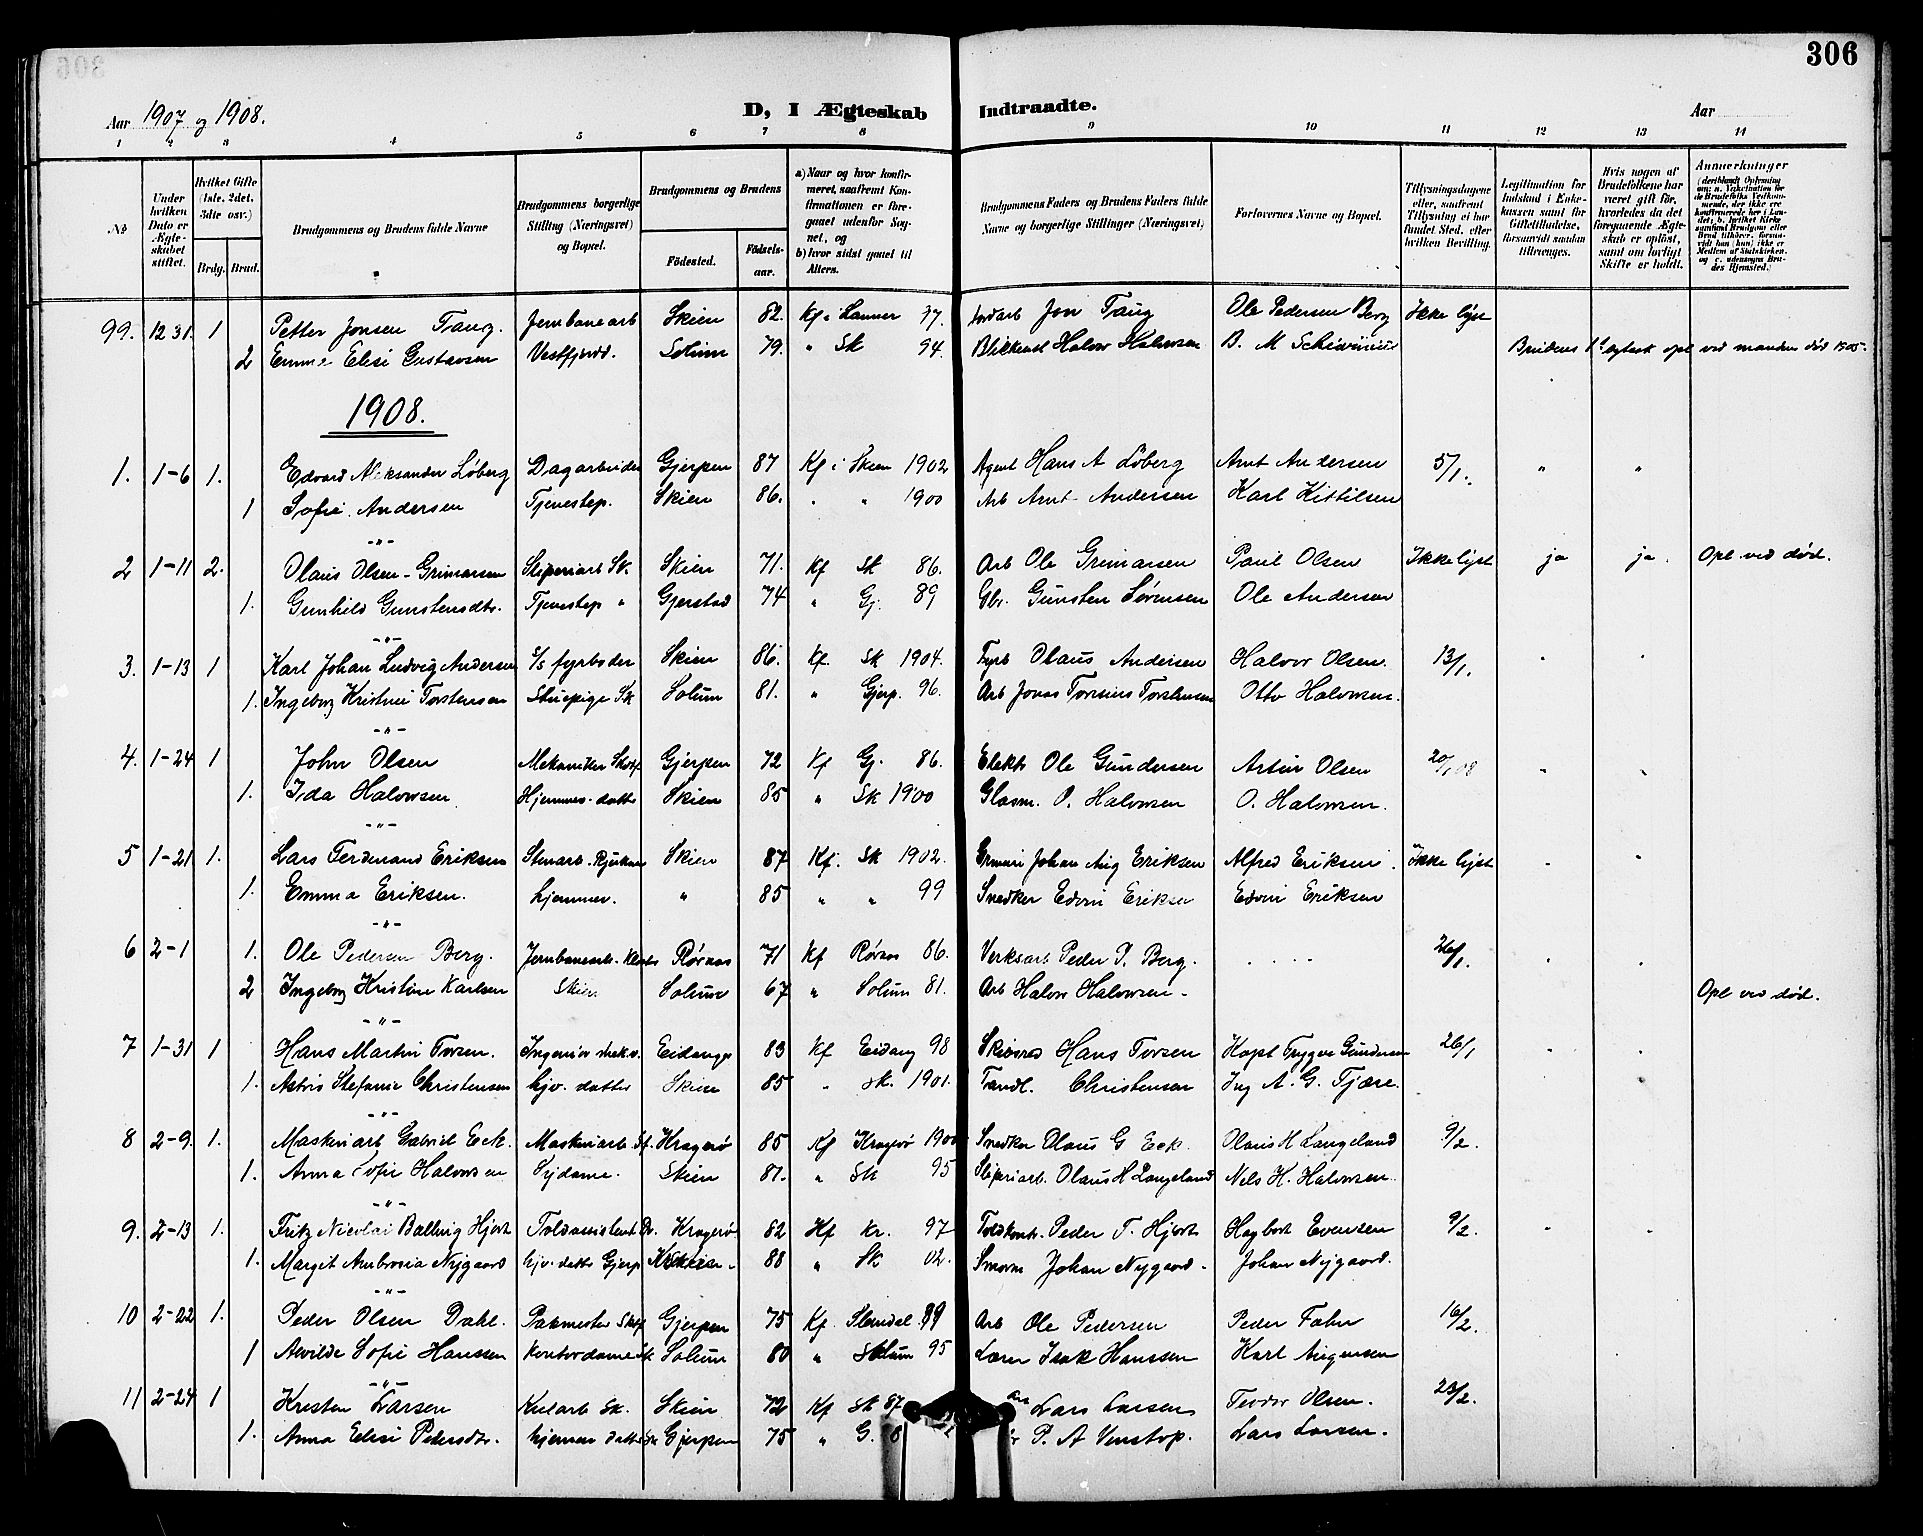 306
Aar 1907 og 1908. D, I Ægteskab Indtraadte. Aar
1 2 3 4 5 6 7 8 9 10 11 12 13 14
No
Under hvilken Dato er Ægteskabet stiftet.
Hvilket Gifte (1ste, 2det, 3die osv.)
Brdg. Brud.
Brudgommens og Brudens fulde Navne
Brudgommens borgerlige Stilling (Næringsvei) og Bopæl.
Brudgommens og Brudens
Fødested. Fødselsaar.
a) Naar og hvor konfirmeret, saafremt Konfirmationen er foregaaet udenfor Sognet, og
b) hvor sidst gaaet til Alters.
Brudgommens Faders og Brudens Faders fulde Navne og borgerlige Stillinger (Næringsvei)
Forlovernes Navne og Bopæl.
Tillysningsdagene eller, saafremt Tillysning ei har fundet Sted, efter hvilken Bevilling.
Legitimation for Indskud i Enkekassen samt for Giftetilladelse, forsaavidt saadan tiltrænges.
Hvis nogen af Brudefolkene har været gift før, hvorledes da det foregaaende Ægteskab er opløst, samt om lovligt Skifte er holdt.
Anmerkninger
99. 12 31. 1 Petter Jonsen Tang. Jernbanearb Skien 82. Kf. 97. Jon Tang Ole Pedersen Berg Ikke lyst
2 Emma Elise Gustavsen Vestfjordd. Solum 79. " Sk 94. Blikkensl Halvor Halvorsen B. M Brudens 1ste egtesk opl ved manden død 1905.
1908.
1. 1-6 1. Edvard Aleksander Löberg Dagarbeider Gjerpen 87 Kf i Skien 1902 Agent Hans A Löberg Arnt Andersen 5/1. " "
1 Sofie Andersen Tjenestep. Skien 86. " " 1900 Arb Arnt Andersen Karl Kittilsen
2 1-11 2. Olaus Olsen-Grimarsen Sliperiarb Sk. Skien 71. Kf Sk 86. Arb Ole Grimarsen Paul Olsen Ikke lyst ja ja. Opl ved død.
1. Gunhild Gunstensdtr. Tjenestep " Gjerstad 74 " Gj. 89 Gbr. Gunsten Sørensen Ole Andersen
3. 1-13 1 Karl Johan Ludvig Andersen S/S fyrbøder Skien 86. Kf. Sk 1904. Fyrb Olaus Andersen Halvor Olsen. 13/1.
1. Ingeborg Kristine Torstensen Stuepige Sk Solum 81. " Gjerp. 96. Arb Jonas Torsius Torstensen Otto Halvorsen.
4. 1-24 1 John Olsen Mekaniker Skotf Gjerpen 72 Kf Gj. 86. Elektr Ole Gundersen Artur Olsen 20/1 08
1. Ida Halvorsen Hjemmev. datter Skien 85 " Sk 1900 Glasm. O. Halvorsen O. Halvorsen.
5 1-21 1. Lars Ferdinand Eriksen Stenarb. Rjukan Skien 87 Kf. Sk 1902. Johan Aug Eriksen Alfred Eriksen. Ikke lyst
1. Emma Eriksen. hjemmev. " 85 " " 99 Snedker Edvin Eriksen Edvin Eriksen
6 2-1 1. Ole Pedersen Berg. Jernbanearb. Røraas 71 Kf Røraas 86. Verksarb Peder P. Berg. 26/1.
2 Ingeborg Kristine Karlsen Skien Solum 67 " Solum 81. Arb Halvor Halvorsen. Opl ved død.
7 1-31 1 Hans Martin Torsen. Ingeniør Eidanger 83 Kf Eidang 98 Hans Torsen Kapt Trygve Gundersen 26/1
1. Astrid Stefanie Christensen hjv. datter Skien 85 " Sk. 1901. Tandl. Christensen Ing A. G. Fjære.
8 2-9. 1. Maskinarb Gabriel Eck. Maskinarb Kragerø 85 Kf Kragerø 1900 Snedker Olaus G Eck. Olaus H Langeland 9/2.
1. Anna Sofie Halvorsen Sydame. Skien 81. " Sk 95 Sliperiarb. Olaus H Langeland Nels H. Halvorsen.
9. 2-13 1. Fritz Nicolai Balling Hjort Toldassistent Kragerø 82 Kf kr. 97 Toldkontr. Peder T. Hjort Hagbart Evensen 9/2.
1. Margit Ambrosia Nygaard hjv. datter Gjerp Skien. 88 " Sk 02. Johan Nygaard. Johan Nygaard.
10 2-22 1. Peder Olsen Dahl. Pakmester Skotf Gjerpen 75 Kf. Slemdal 89 Arb Ole Pedersen Peder Fahn 16/2.
1 Alvilde Sofie Hanssen Kontordame Sk Solum 80 " Solum 95 Lærer Isak Hanssen Karl Jørgensen
11 2-24 1 Kristen Larsen Kularb Sk. Skien 72 Kf Sk 87 Lars Larsen Teodor Olsen. 23/2.
1. Anna Elise Pedersdtr. hjemmev datter Sk Gjerpen 75 " G. P. A Venstøp. Lars Larsen.